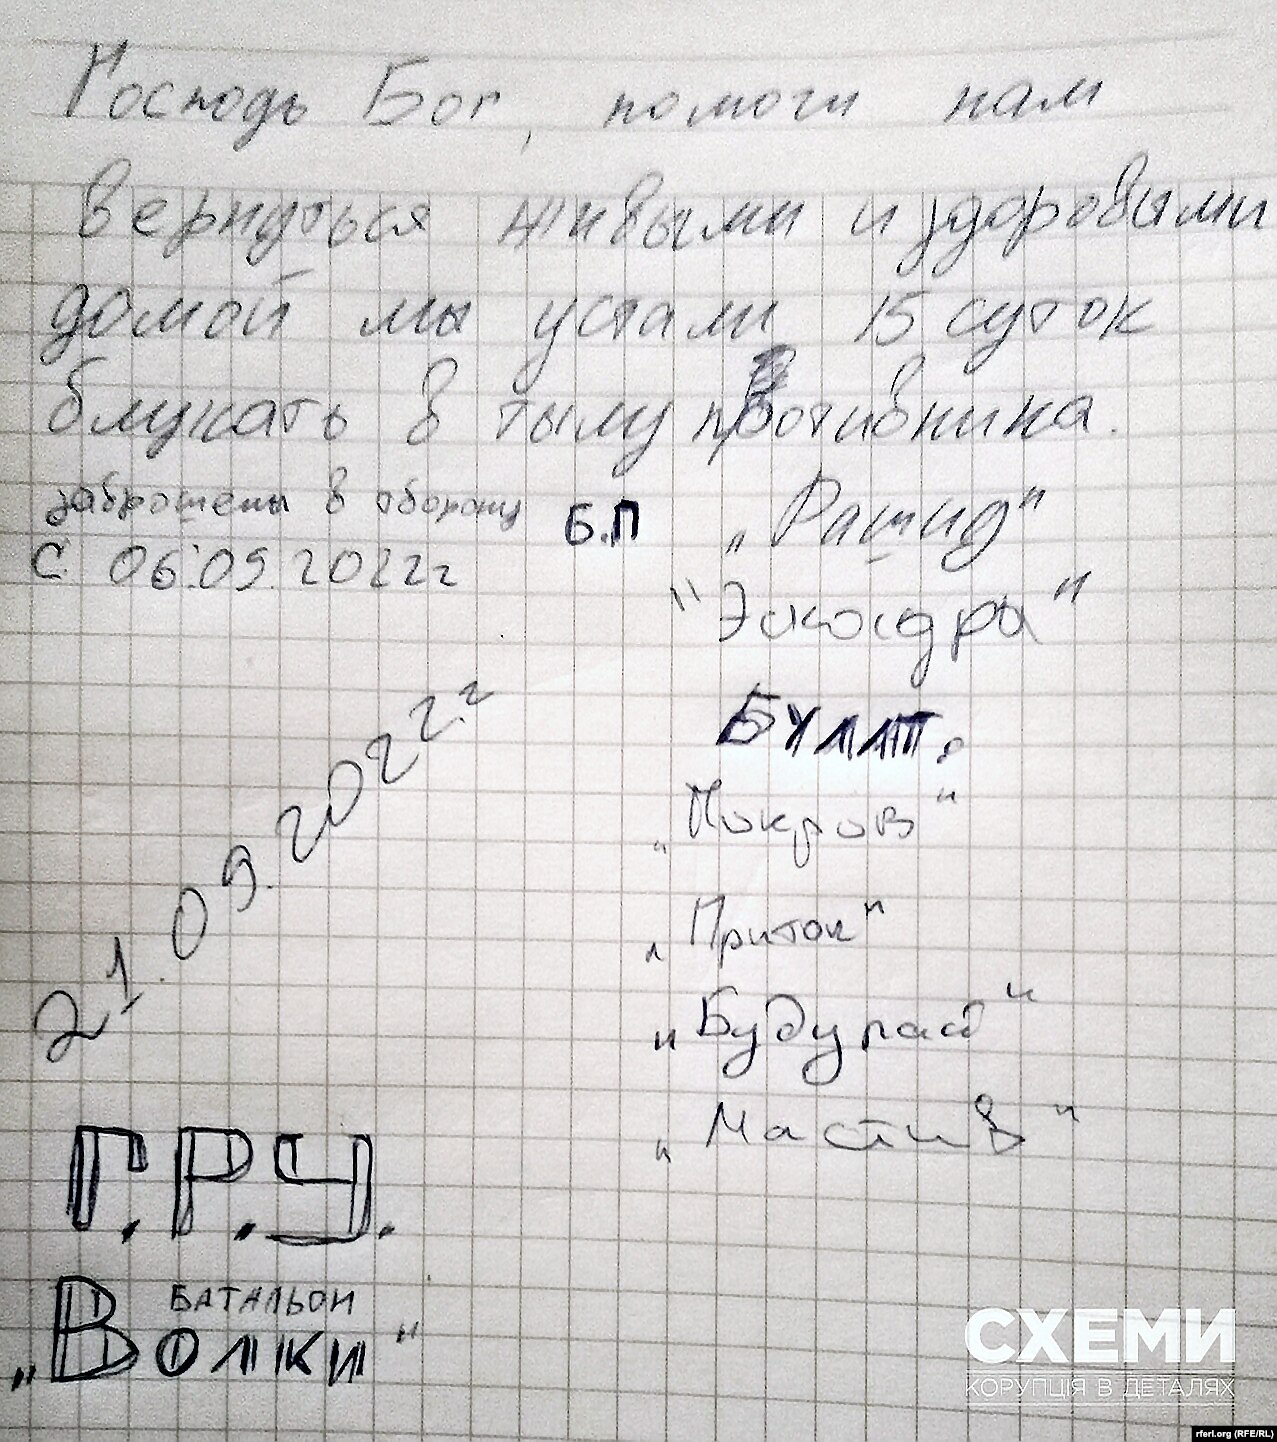 Господь Бог, помоги нам
вернуться живыми и здоровыми
домой мы устали 15 суток
блукать в тылу противника.
заброшены в оборону
с 06.09.2022г
Б.П
„Рашид"
"Эскодра"
Булат.
„Покров"
„Приток"
"Будулай"
„Мастив"
21.09.2022г
Г.Р.У.
БАТАЛЬОН
„Волки"
СХЕМИ
КОРУПЦІЯ В ДЕТАЛЯХ
rferl.org (RFE/RL)